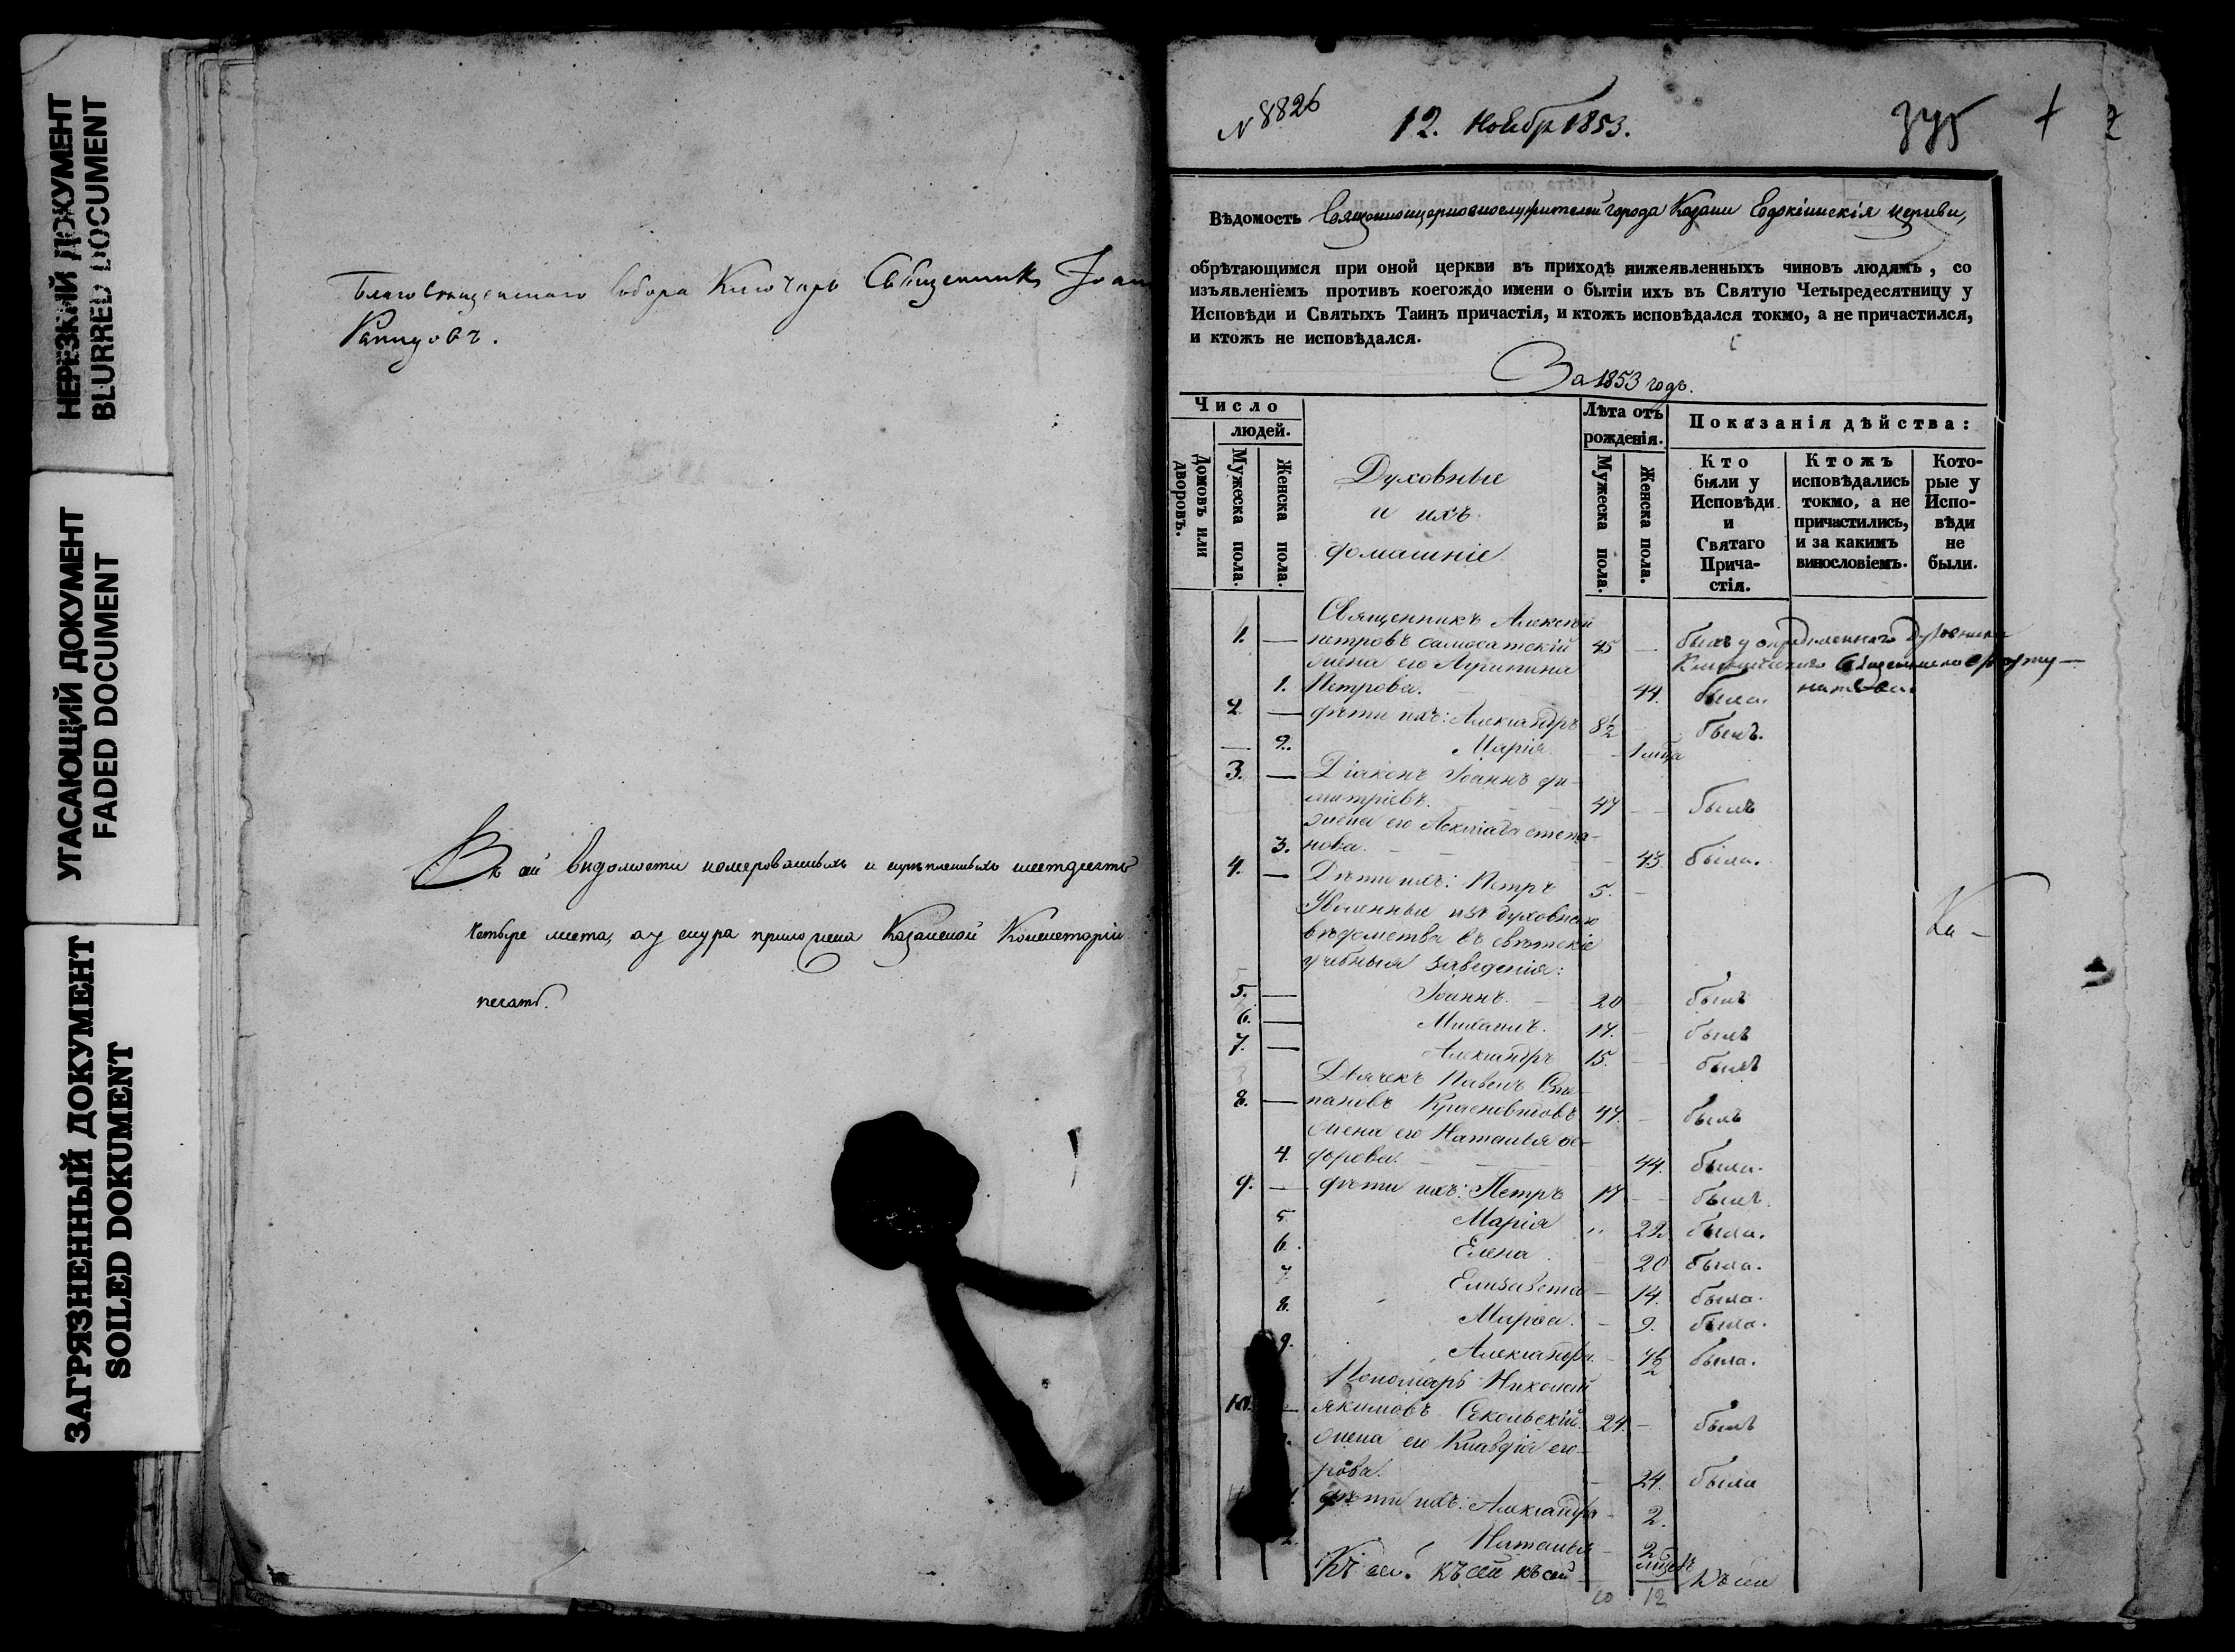 НЕРЕЗКИЙ ДОКУМЕНТ
BLURRED DOCUMENT
УГАСАЮЩИЙ ДОКУМЕНТ
FADED DOCUMENT
ЗАГРЯЗНЕННЫЙ ДОКУМЕНТ
SOILED DOKUMENT
Благовѣщенскаго Собора Ключарь Священникъ
четыре листа, а у снура приложена Казанской Консисторіи
печать.
N 8826
12. Ноябр 1853.
Вѣдомость Священноцерковнослужителей города Казани Евдокіинскія церкви,
обрѣтающимся при оной церкви въ приходѣ нижеявленныхъ чиновъ людямъ, со
изъявленіемъ противъ коегождо имени о бытіи ихъ въ Святую Четыредесятницу у
Исповѣди и Святыхъ Таинъ причастія, и ктожъ исповѣдался токмо, а не причастился,
и ктожъ не исповѣдался.
За 1853 годъ.
Число
людей.
Домовъ или дворовъ.
Мужеска пола.
Женска пола.
Духовные
и ихъ
домашніе
Лѣта отъ
рожденія.
Мужеска пола.
Женска пола.
Показанія дѣйства:
Кто
были у
Исповѣди
и
Святаго
Прича-
стія.
Ктожъ
исповѣдались
токмо, а не
причастились,
и за какимъ
винословіемъ.
Кото-
рые у
Испо-
вѣди
не
были.
Священникъ Алексѣй
1. — Петровъ Самосатскій 45 —
жена его
1. Петрова. 44. была.
2. — дѣти ихъ: Александръ 8½ былъ.
— 2. Марія.
3. — Діаконъ Іоаннъ Ди-
митріевъ. 47 — былъ
жена его Степа-
3. нова. — 43. была.
4. — Дѣти ихъ: Петръ 5. —
Уволенные изъ духовнаго
вѣдомства въ свѣтскіе
учебныя заведенія:
5. — Іоаннъ. 20 былъ
6. — Михаилъ. 17. былъ
7. — Александръ 15. былъ
Дьячекъ Павелъ Сте-
8. — пановъ Красновидовъ 47. — былъ
жена его Наталья Ѳе-
4. дорова. 44. была.
9. — дѣти ихъ: Петръ 17 — былъ.
5 Марія 22 была.
6. Елена 20 была.
7 Елизавета 14. была.
8. Марѳа. 9. была.
9. Александра 4½ была.
Пономарь Николай
10. — Якимовъ Сокольскій. 24. — былъ
жена его Клавдія Его-
рова. 24. была
дѣти ихъ: Александра 2.
Наталья 2
Къ сей къ сей къ сей Къ сей
10 12